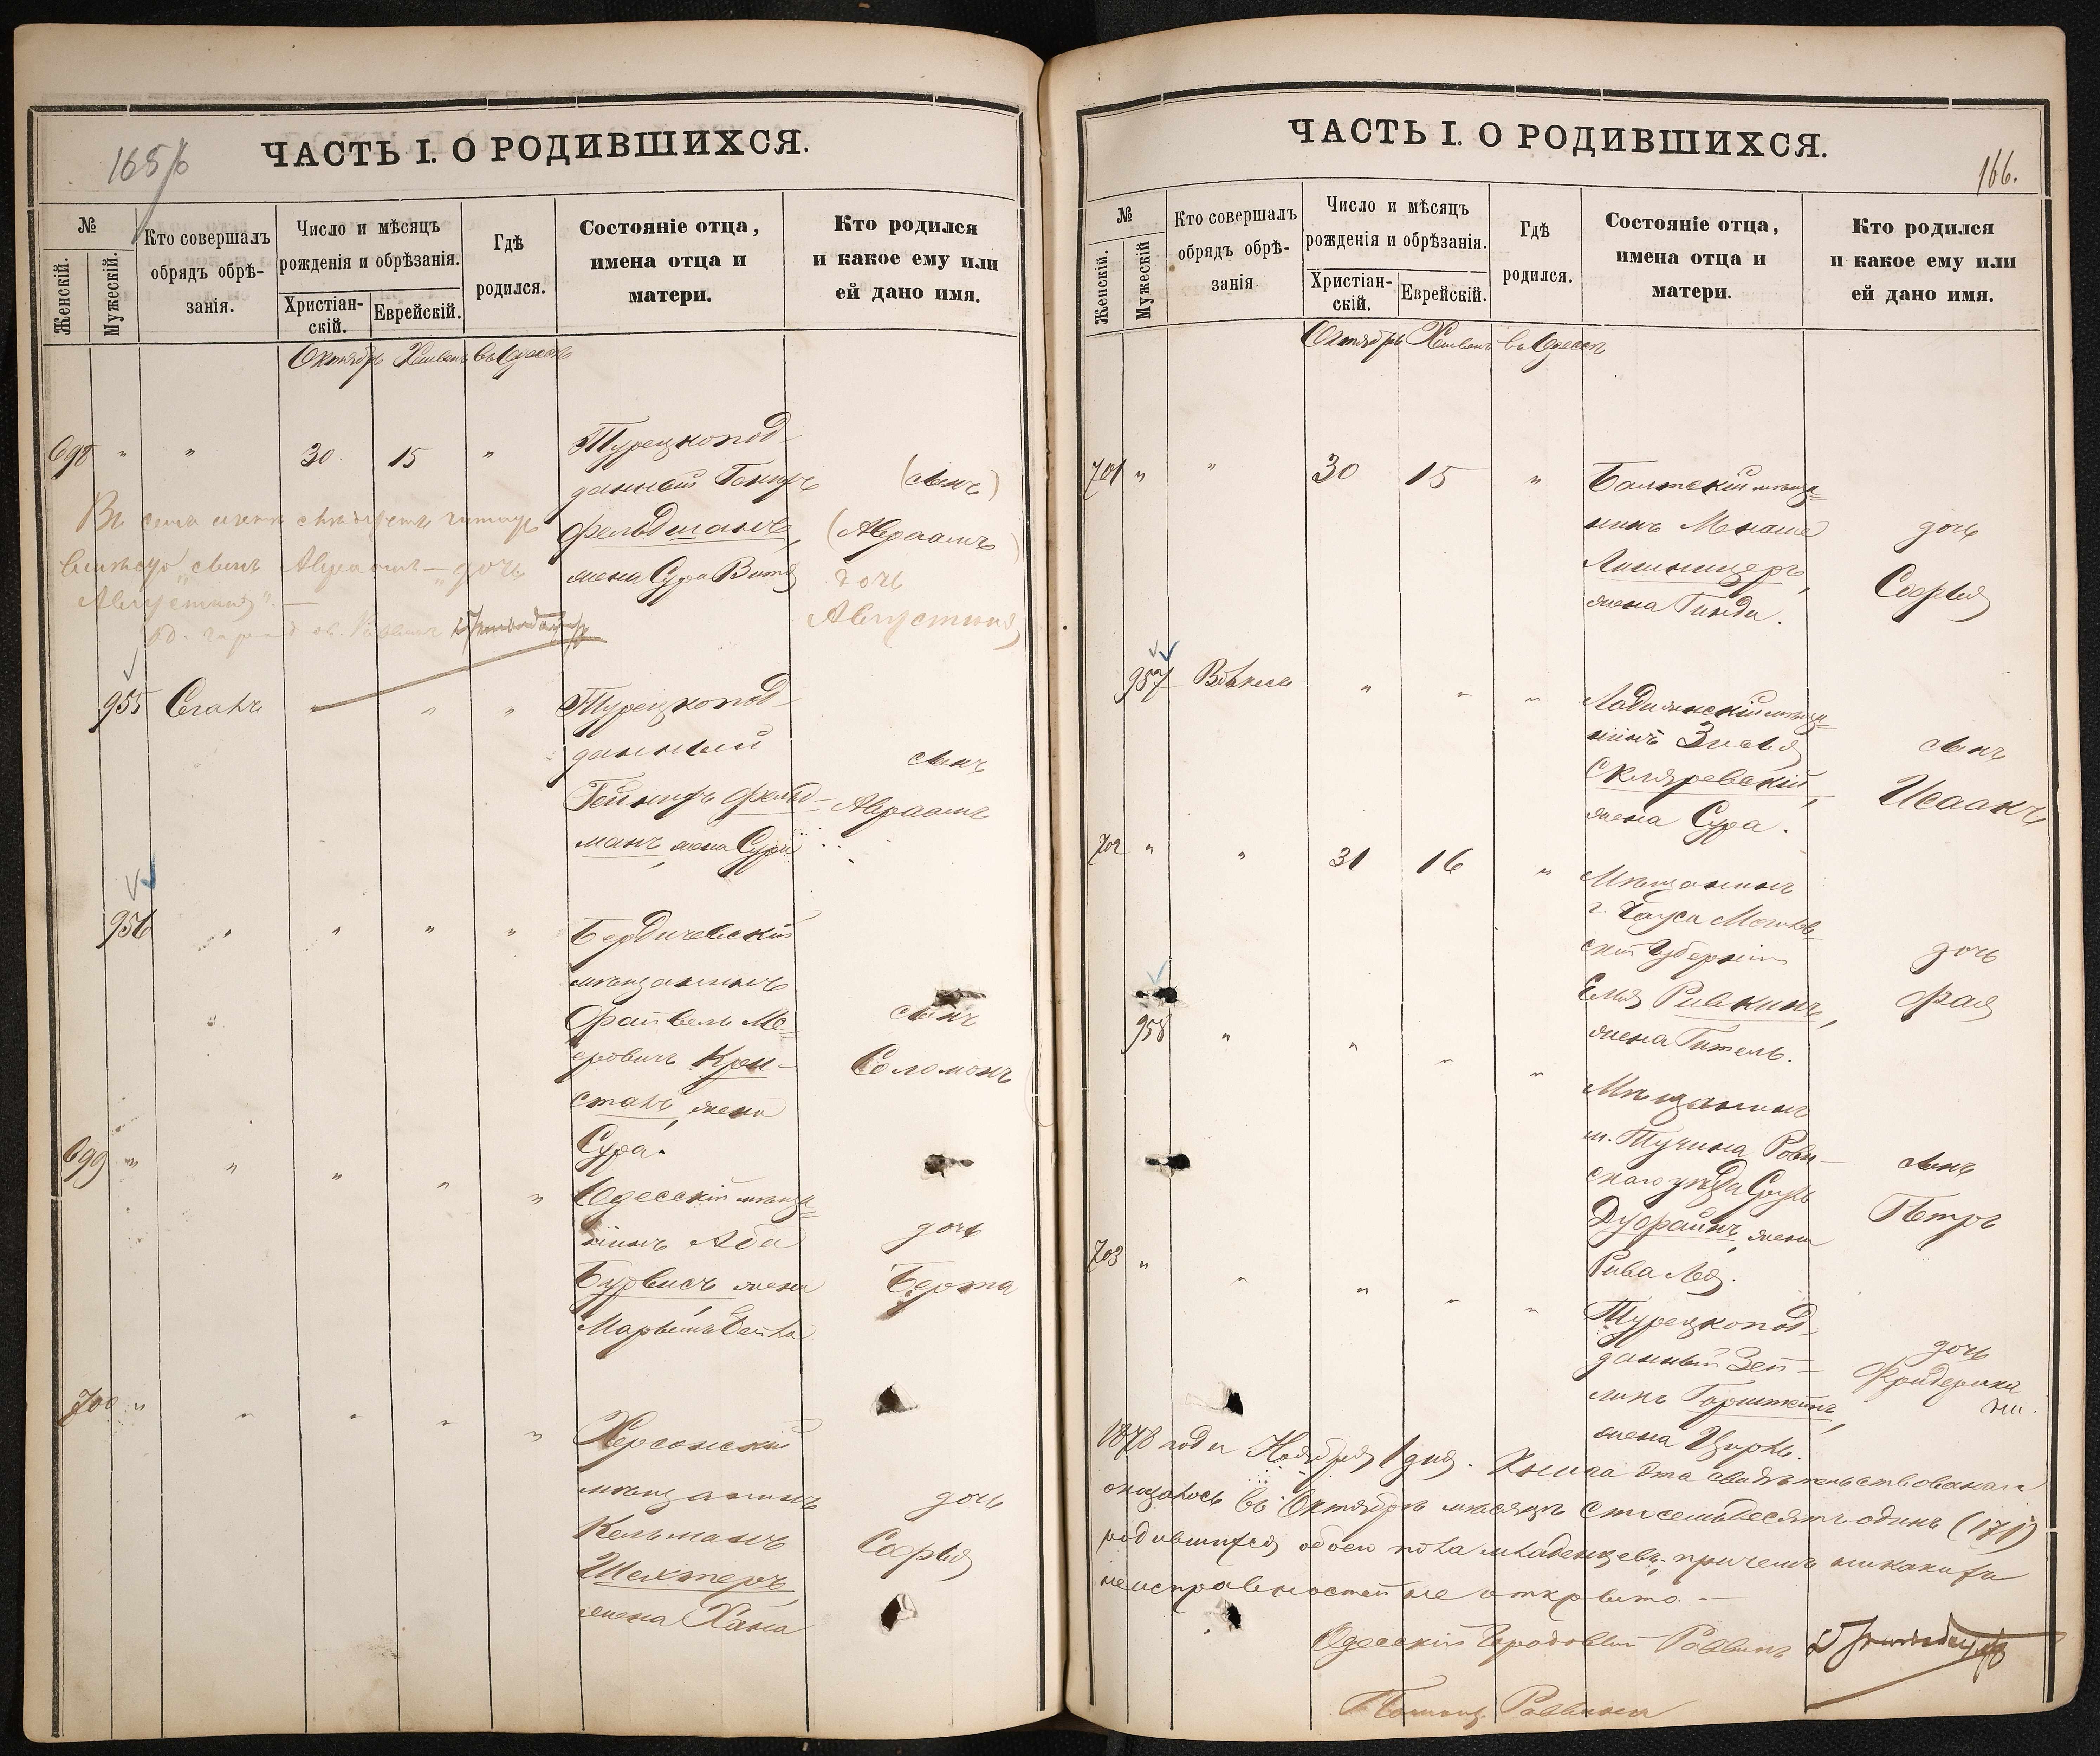 165/б
ЧАСТЬ I. О РОДИВШИХСЯ.
№
Женскій.
Мужескій.
Кто совершалъ
обрядъ обрѣ-
занія.
Число и мѣсяцъ
рожденія и обрѣзанія.
Христіан-
скій.
Еврейскій.
Гдѣ
родился.
Состояніе отца,
имена отца и
матери.
Кто родился
и какое ему или
ей дано имя.
Октябрь Хешвенъ въ Одессѣ
698 " " 30 15 "
Турецкопод-
данный Генихъ
Фельдманъ,
жена Сура Витя
(сынъ)
(Авраамъ)
дочь
Августина
вмѣсто „сынъ Авраамъ — „дочь
Августина". —
955 Сегалъ " "
Турецкопод-
данный
Гейнихъ Фельд-
манъ, жена Сура
сынъ
Авраамъ
956 " " " "
Бердичевскій
мѣщанинъ
Файвель Ме-
еровичъ Крон-
сталь, жена
Сура.
сынъ
Соломонъ
699 " " " " "
Одесскій мѣща-
нинъ Аба
Бурвисъ, жена
Марьемъ Бейла
дочь
Берта
700 " " " " "
Херсонскій
мѣщанинъ
Кельманъ
Шехтеръ,
жена Хана
дочь
Софья
ЧАСТЬ I. О РОДИВШИХСЯ.
166.
№
Женскій.
Мужескій
Кто совершалъ
обрядъ обрѣ-
занія
Число и мѣсяцъ
рожденія и обрѣзанія.
Христіан-
скій.
Еврейскій.
Гдѣ
родился.
Состояніе отца,
имена отца и
матери.
Кто родился
и какое ему или
ей дано имя.
Октябрь Хешвенъ въ Одессѣ
701 " " 30 15 "
Балтскій мѣща-
нинъ Менаше
жена Гинда.
дочь
Софья
957 " " "
Ладыжинскій мѣща-
нинъ Зисья
Скляревскій,
жена Сура.
сынъ
Исаакъ
702 " " 31 16 "
Мѣщанинъ
г. Чаусы Могилев-
ской Губерніи
Еля Ривкинъ,
жена Гитель.
дочь
Фая
958 " " " "
Мѣщанинъ
м. Тучина Ровен-
скаго уѣзда Сруль
Дуфайнъ, жена
Рива Лея.
сынъ
Петръ
703 " " " " "
Турецкопод-
данный Зей-
ликъ Горштейнъ,
жена Цирль.
дочь
Фридерика
1878 года Ноября 1 дня. Книга эта свидѣтельствована и
оказалось въ Октябрѣ мѣсяцѣ стосемьдесятъ одинъ (171)
родившихся обоего пола младенцевъ, причемъ никакихъ
неисправностей не открыто. —
Одесскій Городовый Раввинъ
Раввина